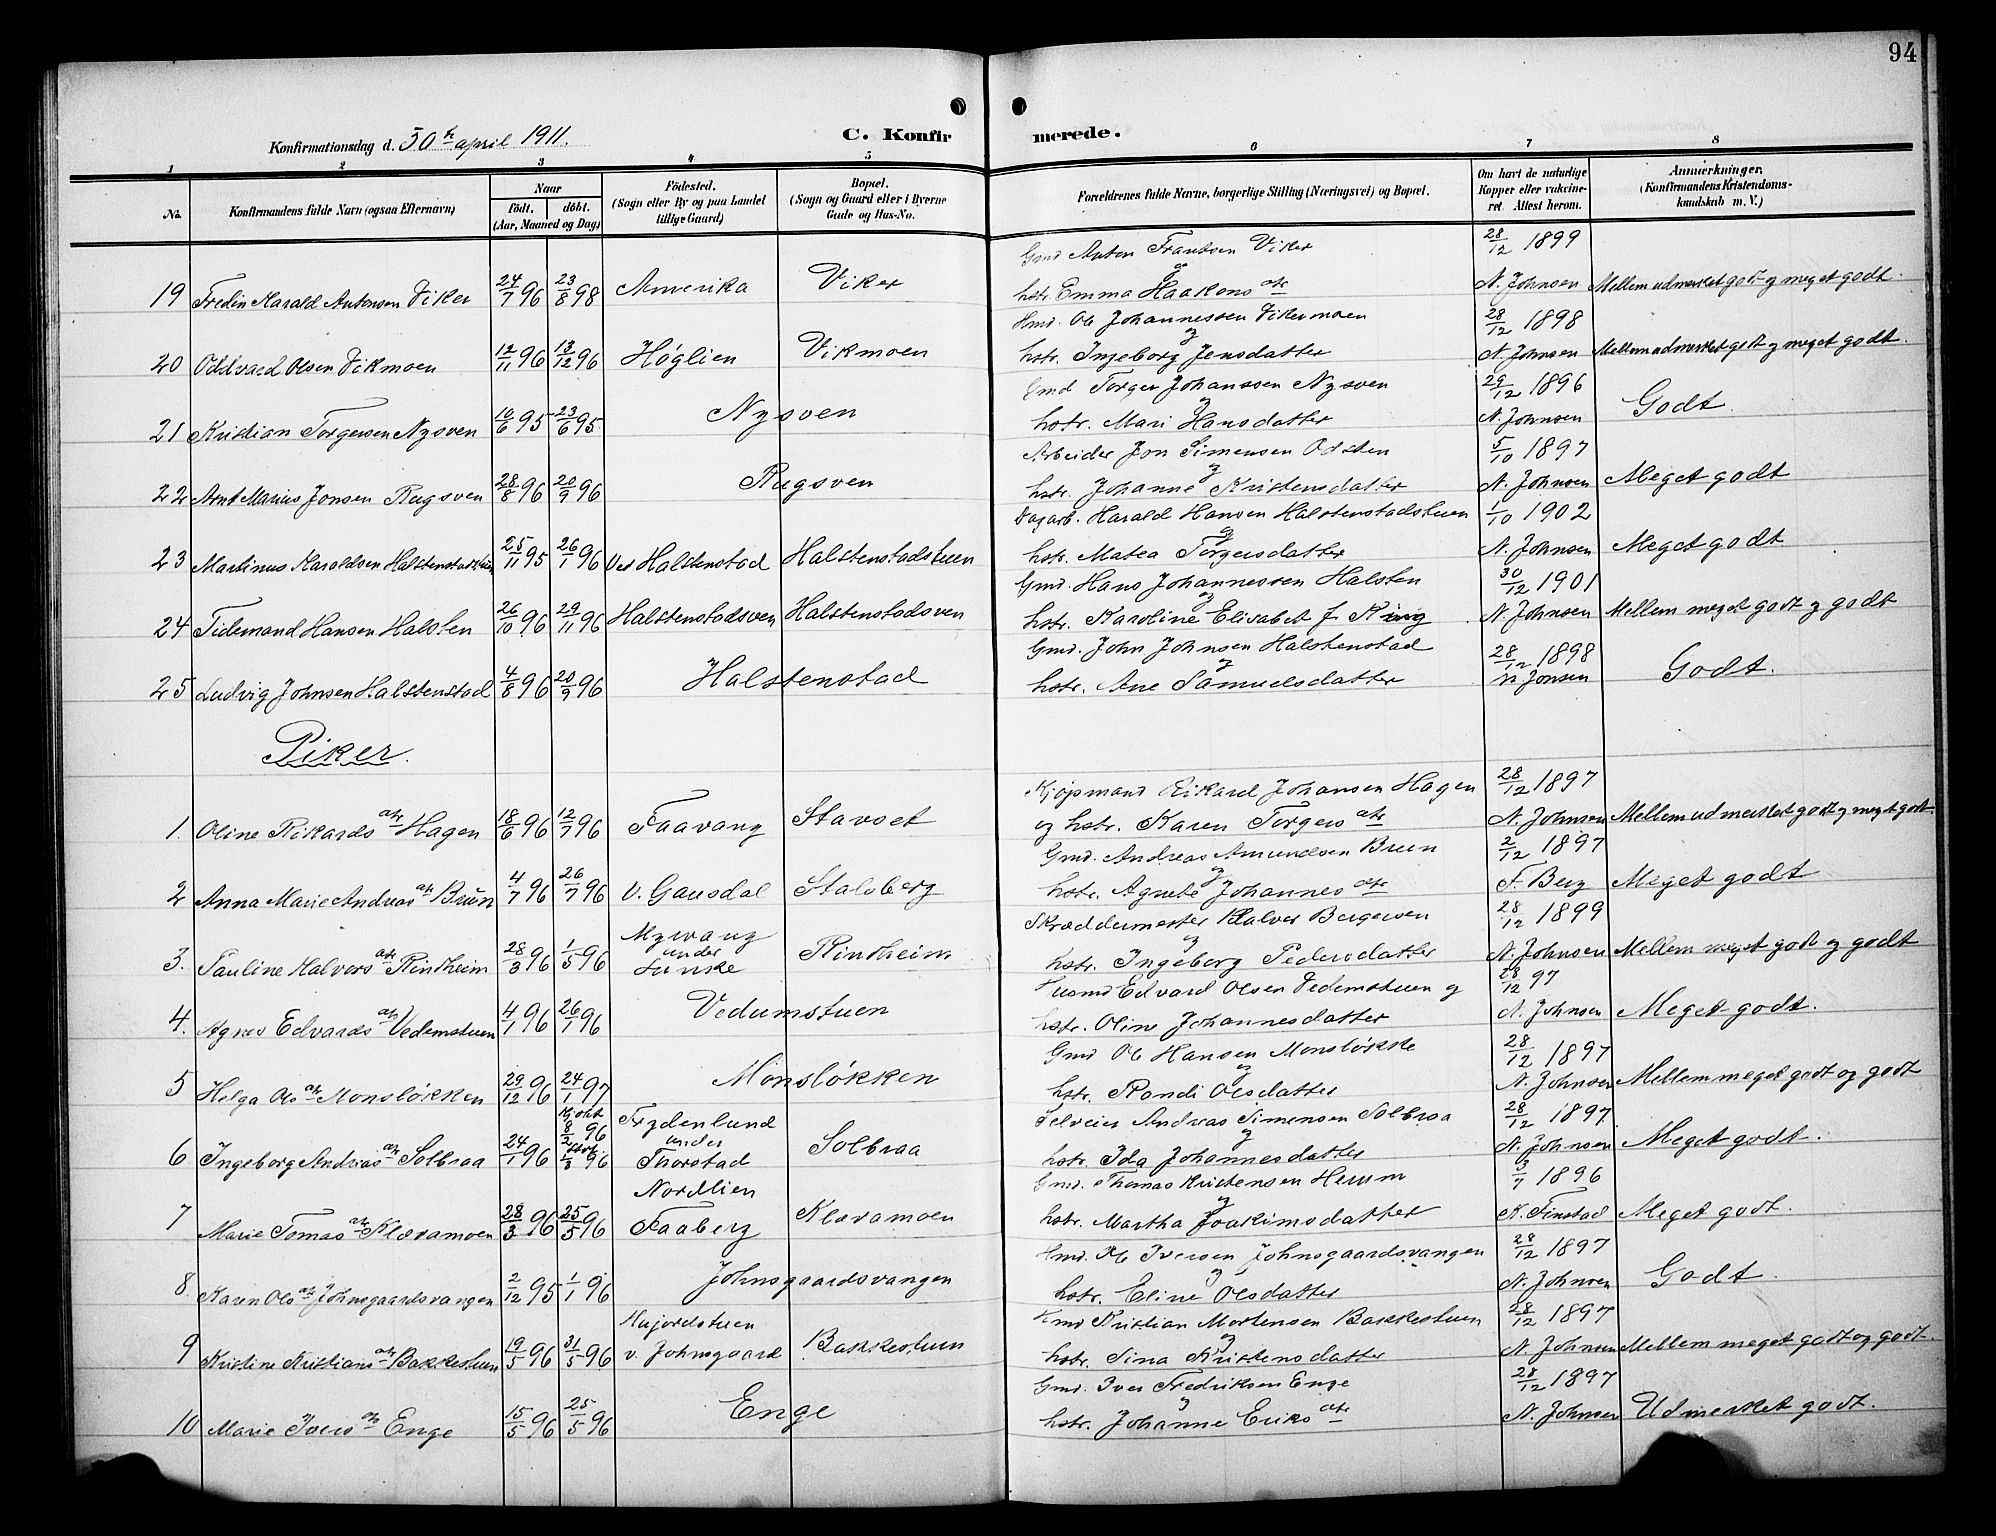 94
Konfirmationsdag d. 30te april 1911.
C. Konfirmerede.
1 2 3 4 5 6 7 8
No. Konfirmandens fulde Navn (ogsaa Efternavn) Naar født. døbt. (Aar, Maaned og Dag) Fødested. (Sogn eller By og paa Landet tillige Gaard) Bopæl. (Sogn og Gaard eller i Byerne Gade og Hus-No. Forældrenes fulde Navne, borgerlige Stilling (Næringsvei) og Bopæl. Om havt de naturlige Kopper eller vaksineret. Attest herom. Anmærkninger. (Konfirmandens Kristendomskundskab m. V.)
Gmd Anton Frantsen Viker 28/12 1899
og
19 Fredin Harald Antonsen Viker 24/7 96 23/8 98 Amerika Viker hstr. Emma Haakonsdtr N. Johnsen Mellem udmerket godt og meget godt.
Hmd. Ole Johannessen Vikermoen 28/12 1898
og
20 Oddvard Olsen Vikmoen 12/11 96 13/12 96 Høglien Vikmoen hstr. Ingeborg Jensdatter N. Johnsen Mellem udmerket godt og meget godt.
Gmd Torger Johanssen Nysven 29/12 1896
og
21 Kristian Torgersen Nysven 10/6 95 23/6 95 Nysven hstr. Mari Hansdatter N. Johnsen Godt.
Arbeider Jon Simensen Odsten 5/10 1897
og
22 Arnt Marius Jonsen Rugsven 28/8 96 20/9 96 Rugsven hstr. Johanne Kristensdatter N. Johnsen Meget godt
Dagarb. Harald Hansen Halstenstadstuen 1/10 1902
og
23 Martinus Haraldsen Halstenstadstuen 25/11 95 26/1 96 Ved Halstenstad Halstenstadstuen hstr. Matea Torgersdatter N. Johnsen Meget godt
Gmd. Hans Johannessen Halsten 30/12 1901
og
24 Tidemand Hansen Halsten 26/10 96 29/11 96 Halstenstadsven Halstenstadsven hstr. Karoline Elisabet f. King N. Johnsen Mellem meget godt og godt
Gmd. John Johnsen Halstenstad 28/12 1898
og
25 Ludvig Johnsen Halstenstad 4/8 96 20/9 96 Halstenstad hstr. Ane Samuelsdatter N Jonsen Godt.
Piker.
Kjøpmand Rikard Johansen Hagen 28/12 1897
1. Oline Rikardsdtr Hagen 18/6 96 12/7 96 Faavang Stavset og hstr. Karen Torgersdtr N. Johnsen Mellem udmerket godt og meget godt.
Gmd. Andreas Amundsen Bruun 2/12 1897
og
2 Anna Marie Andreasdtr Bruun 4/7 96 26/7 96 V. Gausdal Stalsberg hstr. Agnete Johannesdtr F. Berg Meget godt
Skræddermester Halvor Bergersen 28/12 1899
og
Myrvang under
3. Pauline Halvorsdtr Rindheim 28/3 96 1/5 96 Rindheim hstr. Ingeborg Pedersdatter N. Johnsen Mellem meget godt og godt
Husmd Edvard Olsen Vedemstuen og 28/12 97
4. Agnes Edvardsdtr Vedemstuen 4/1 96 26/1 96 Vedumstuen hstr. Oline Johannesdatter N. Johnsen Meget godt.
Gmd Ole Hansen Monsløkke 28/12 1897
og
5 Helga Olsdtr Monsløkken 29/12 96 24/1 97 Monsløkken hstr. Randi Olsdatter N. Johnsen Mellem meget godt og godt
Selveier Andreas Simensen Solbraa 28/12 1897.
og
Frydenlund under
6 Ingeborg Andreasdtr Solbraa 24/1 96 8/2 96 1/3 96 Thorstad Solbraa hstr. Ida Johannesdatter N. Johnsen Meget godt.
Gmd. Thomas Kristensen Herum 3/7 1896
og
Nordlien
7 Marie Tomasdtr Kloramoen 28/3 96 25/5 96 Faaberg Kloramoen hstr. Martha Joakimsdatter K. Finstad Meget godt.
Hmd. Ole Iversen Johnsgaardsvangen 28/12 1897
og
8. Karen Olsdtr Johnsgaardsvangen 2/12 95 1/1 96 Johnsgaardsvangen hstr. Eline Olsdatter N. Johnsen Godt.
Hmd Kristian Mortensen Bakkestuen 28/12 1897
og
9 Kristine Kristiansdtr Bakkestuen 19/5 96 31/5 96 v. Johnsgaard Bakkestuen hstr. Sina Kristensdatter N. Johnsen Mellem meget godt og godt.
Gmd. Iver Fredriksen Enge 28/12 1897
og
10 Marie Iversdtr Enge 15/5 96 25/5 96 Enge hstr. Johanne Eriksdtr N. Johnsen Udmerket godt.